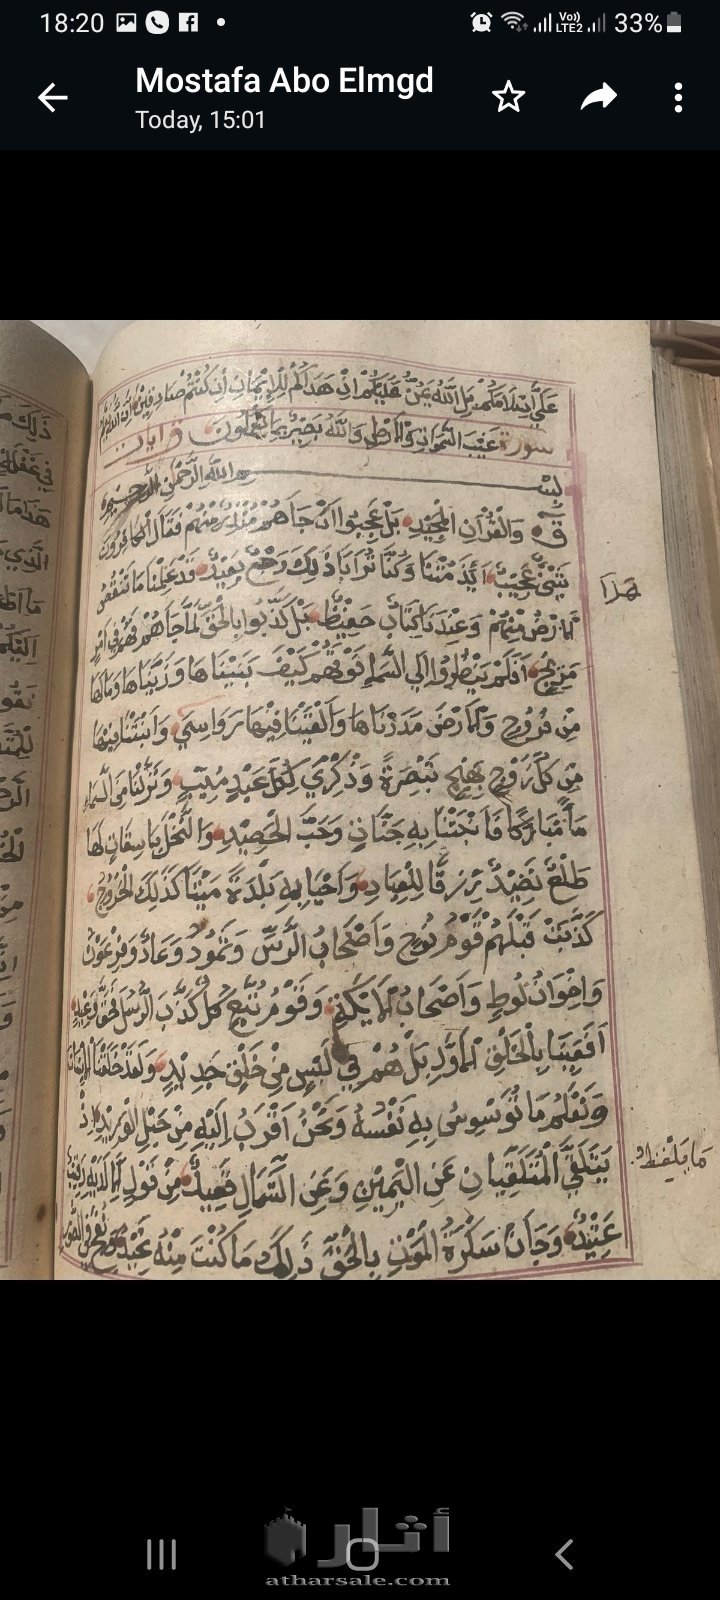 18:20
Vo)) LTE2 33%
Mostafa Abo Elmgd
Today, 15:01
عَلَيَّ اِسْلَامَكُمْ بَلِ اللَّهُ يَمُنُّ عَلَيْكُمْ اَنْ هَدَاكُمْ لِلْاِيْمَانِ اِنْ كُنْتُمْ صَادِقِيْنَ اِنَّ اللَّهَ يَعْلَمُ
سورة غَيْبَ السَّمَوَاتِ وَالْاَرْضِ وَاللَّهُ بَصِيْرٌ بِمَا تَعْمَلُونَ
بِسْمِ اللَّهِ الرَّحْمَنِ الرَّحِيمِ
قٓ وَالْقُرْآنِ الْمَجِيْدِ بَلْ عَجِبُوا اَنْ جَاءَهُمْ مُنْذِرٌ مِنْهُمْ فَقَالَ الْكَافِرُونَ
شَيْئٌ عَجِيْبٌ اَئِذَا مِتْنَا وَكُنَّا تُرَابًا ذَلِكَ رَجْعٌ بَعِيْدٌ قَدْ عَلِمْنَا مَا تَنْقُصُ
هَذَا
الْاَرْضُ مِنْهُمْ وَعِنْدَنَا كِتَابٌ حَفِيْظٌ بَلْ كَذَّبُوا بِالْحَقِّ لَمَّا جَاءَهُمْ فَهُمْ فِي اَمْرٍ
مَرِيْجٍ اَفَلَمْ يَنْظُرُوا اِلَى السَّمَاءِ فَوْقَهُمْ كَيْفَ بَنَيْنَاهَا وَزَيَّنَّاهَا وَمَا لَهَا
مِنْ فُرُوجٍ وَالْاَرْضَ مَدَدْنَاهَا وَاَلْقَيْنَا فِيْهَا رَوَاسِيَ وَاَنْبَتْنَا فِيْهَا
مِنْ كُلِّ زَوْجٍ بَهِيْجٍ تَبْصِرَةً وَذِكْرَى لِكُلِّ عَبْدٍ مُنِيْبٍ وَنَزَّلْنَا مِنَ السَّمَاءِ
مَاءً مُبَارَكًا فَاَنْبَتْنَا بِهِ جَنَّاتٍ وَحَبَّ الْحَصِيْدِ وَالنَّخْلَ بَاسِقَاتٍ لَهَا
طَلْعٌ نَضِيْدٌ رِزْقًا لِلْعِبَادِ وَاَحْيَيْنَا بِهِ بَلْدَةً مَيْتًا كَذَلِكَ الْخُرُوجُ
كَذَّبَتْ قَبْلَهُمْ قَوْمُ نُوحٍ وَاَصْحَابُ الرَّسِّ وَثَمُودُ وَعَادٌ وَفِرْعَوْنُ
وَاِخْوَانُ لُوطٍ وَاَصْحَابُ الْاَيْكَةِ وَقَوْمُ تُبَّعٍ كُلٌّ كَذَّبَ الرُّسُلَ فَحَقَّ وَعِيْدِ
اَفَعَيِيْنَا بِالْخَلْقِ الْاَوَّلِ بَلْ هُمْ فِي لَبْسٍ مِنْ خَلْقٍ جَدِيْدٍ وَلَقَدْ خَلَقْنَا الْاِنْسَانَ
وَنَعْلَمُ مَا تُوَسْوِسُ بِهِ نَفْسُهُ وَنَحْنُ اَقْرَبُ اِلَيْهِ مِنْ حَبْلِ الْوَرِيْدِ اِذْ
يَتَلَقَّى الْمُتَلَقِّيَانِ عَنِ الْيَمِيْنِ وَعَنِ الشِّمَالِ قَعِيْدٌ مِنْ قَوْلٍ اِلَّا لَدَيْهِ رَقِيْبٌ
مَا يَلْفِظُ
عَتِيْدٌ وَجَاءَتْ سَكْرَةُ الْمَوْتِ بِالْحَقِّ ذَلِكَ مَا كُنْتَ مِنْهُ تَحِيْدُ وَنُفِخَ فِي الصُّورِ
أثار
atharsale.com